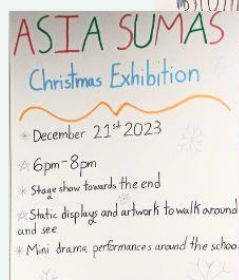 ASIA SUMAS
Christmas Exhibition
* December 21st 2023
* 6pm-8pm
* Stage show towards the end
* Static displays and artwork to walk around
and see
* Mini drama performances around the school